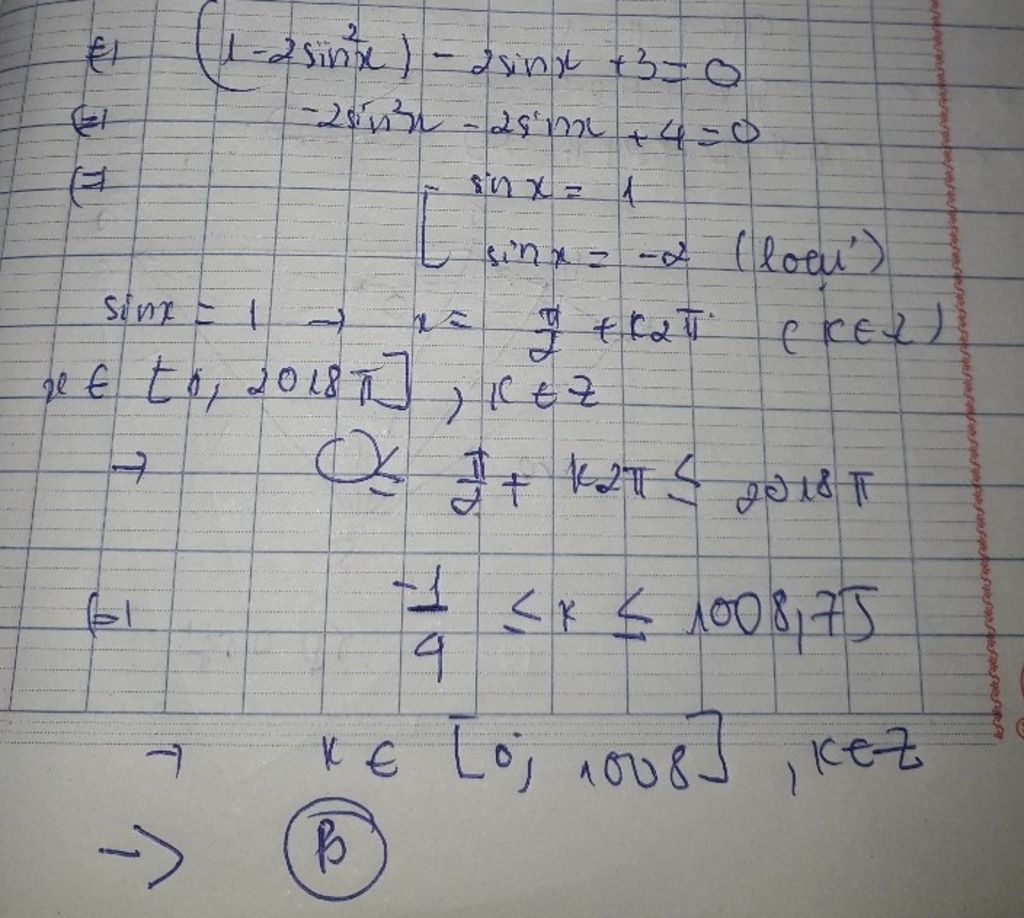 ⇔ (1 - 2sin²x) - 2sinx + 3 = 0
⇔ -2sin²x - 2sinx + 4 = 0
⇔ [ sin x = 1
sin x = -2 (loại)
sinx = 1 → x = π/2 + k2π (k ∈ Z)
x ∈ [0, 2018π], k ∈ Z
→ 0 ≤ π/2 + k2π ≤ 2018π
⇔ -1/4 ≤ k ≤ 1008,75
→ k ∈ [0; 1008], k ∈ Z
→ B